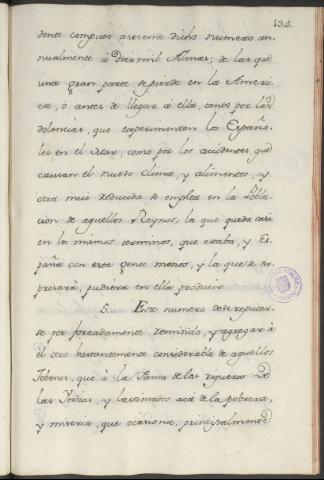 134.
dente computo asciende dicho numero an-
nualmente à Diez mil Almas; de las que
una gran parte se pierde en la Ameri-
ca, ò antes de llegar à ella, tanto por las
dolencias, que experimentan los Españo-
les en el Mar, como por los accidentes que
causan el nuevo clima, y alimentos, y
otra mui reducida se emplea en la Pobla-
cion de aquellos Reynos, la que queda casi
en los mismos terminos, que estaba, y Es-
paña con esta gente menos, y la que se ex-
presarà, pudiera en ella producir.
5. Este numero debe reputar-
se por forzadamente remitido, y agregar à
èl otro bastantemente considerable de aquellos
Jobenes, que à la Fama de las riquezas de
las Indias, y lastimados acà de la pobreza,
y miseria, que ocasiona, principalmente